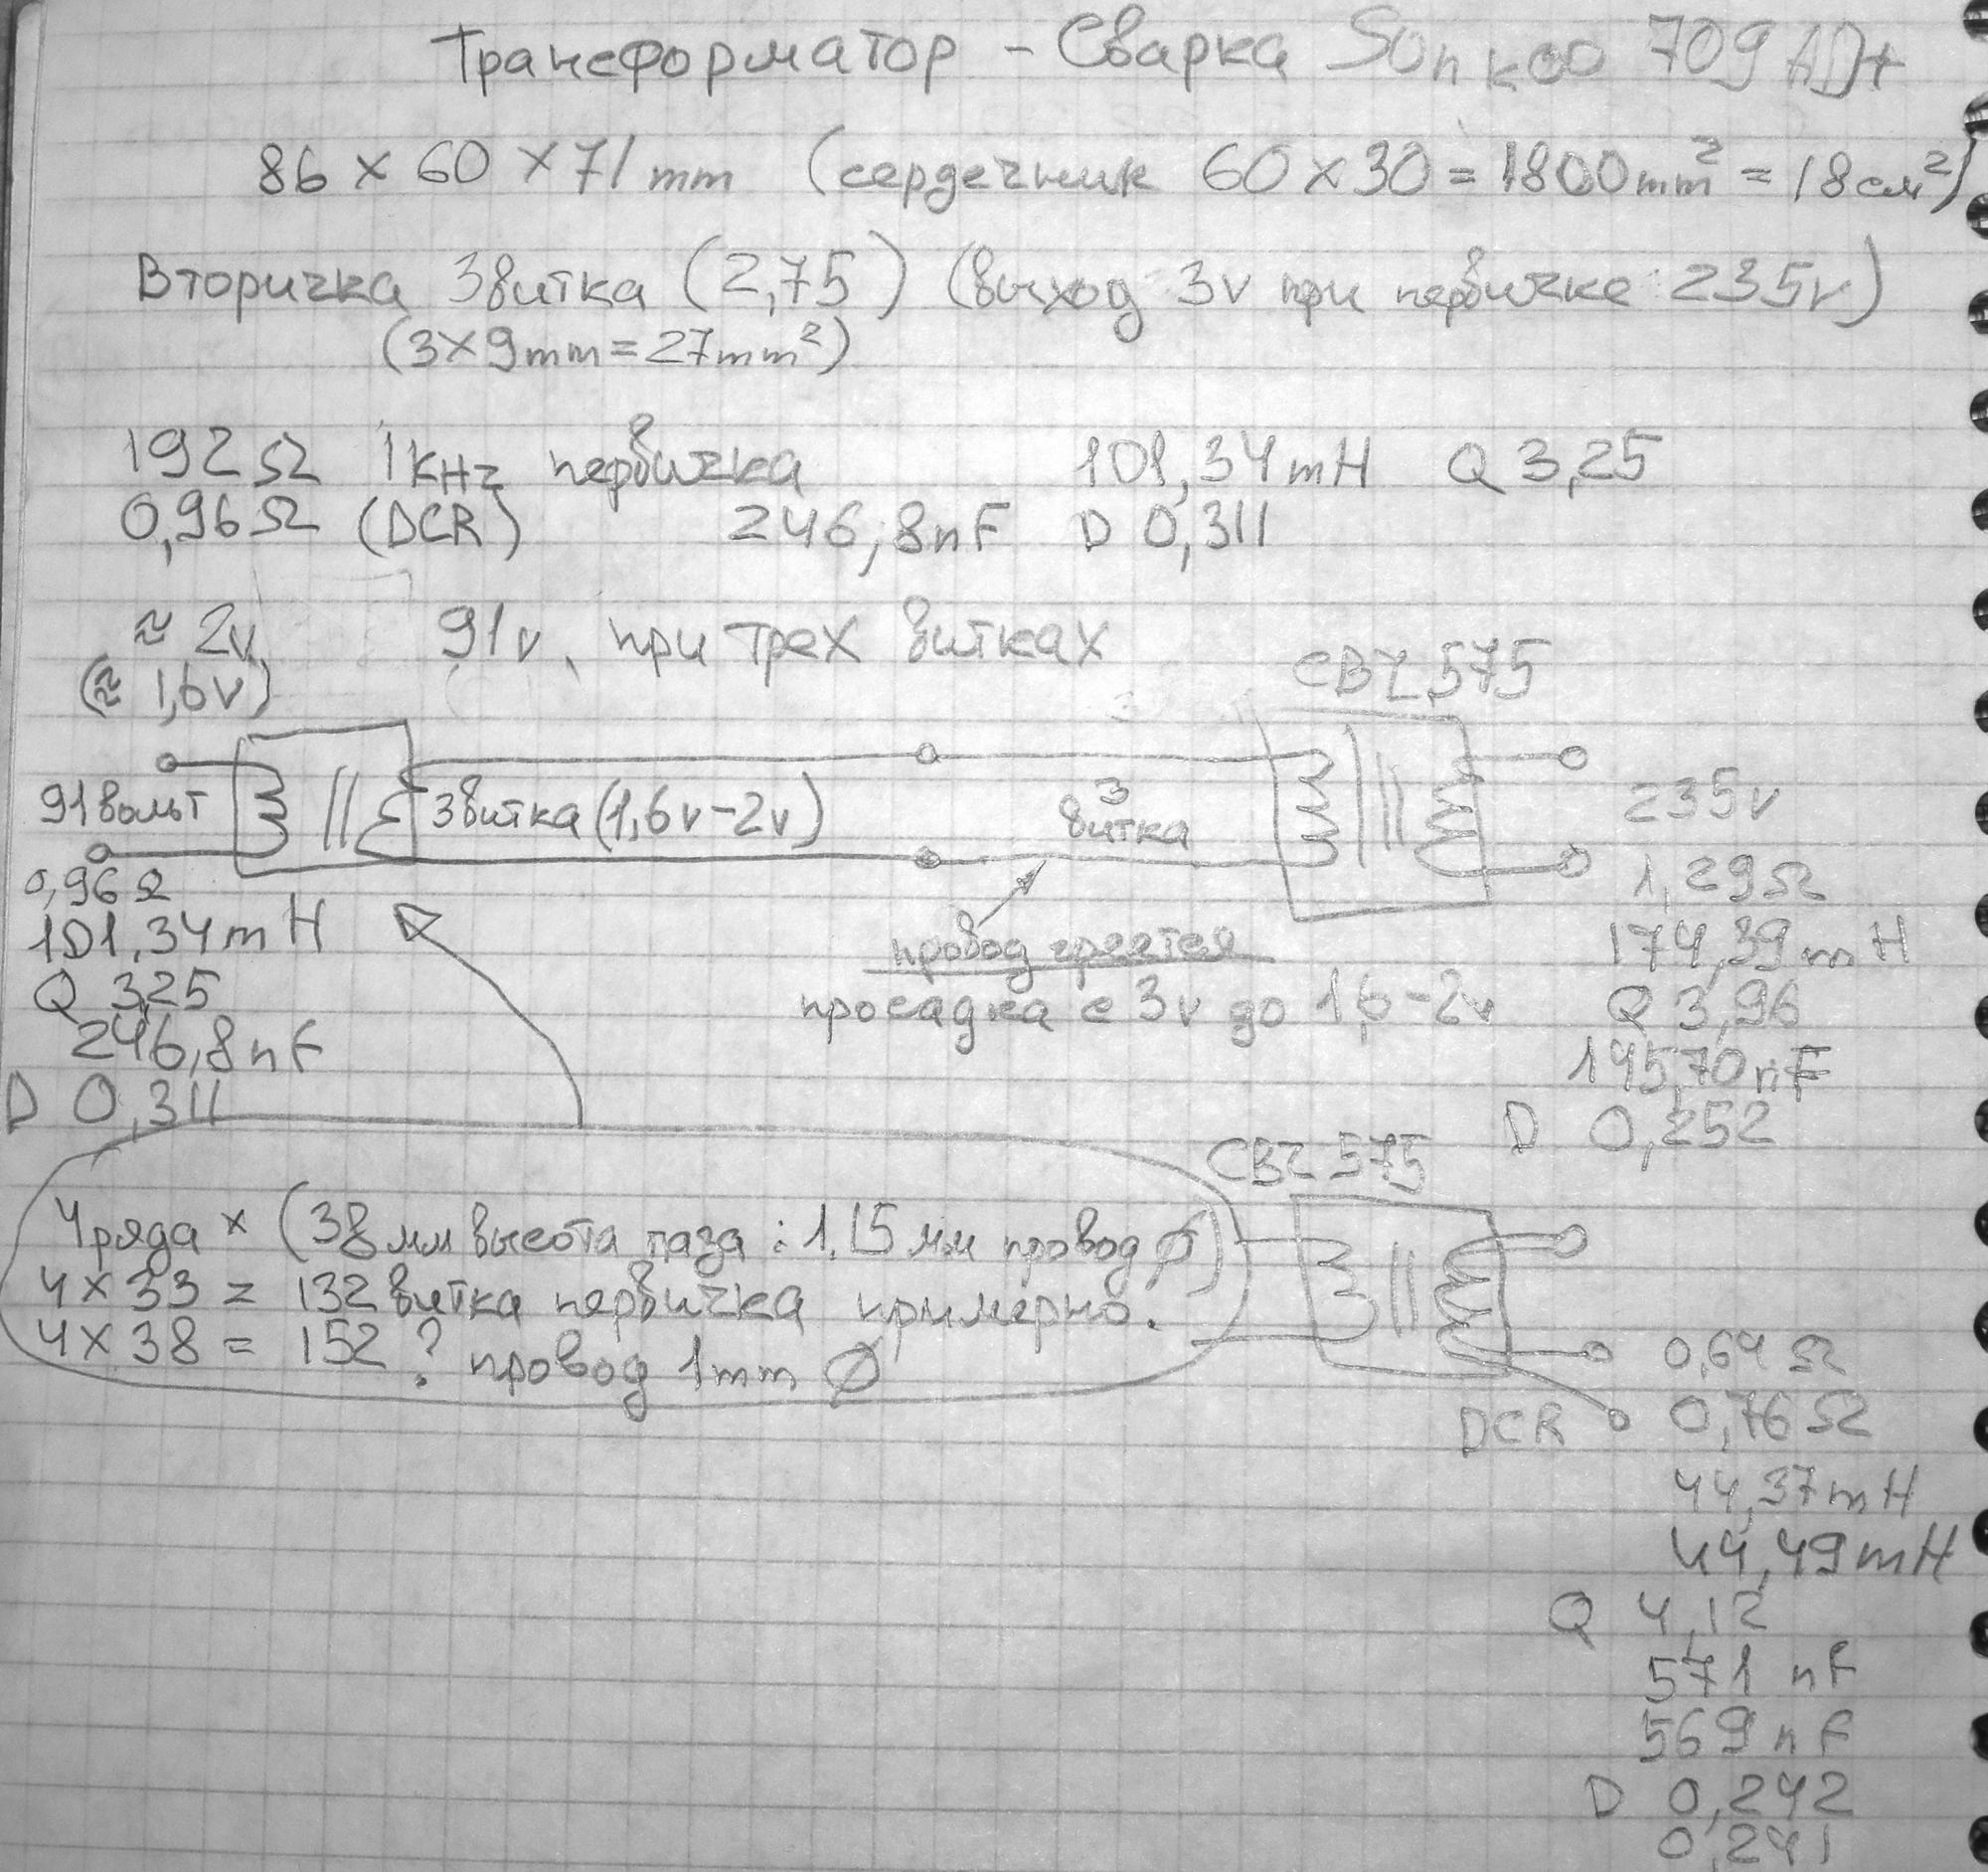 Трансформатор - Сварка Sunkoo 709 AD+
86 x 60 x 71 mm (сердечник 60 x 30 = 1800mm² = 18см²)
Вторичка 3витка (2,75) (выход 3v при первичке 235v)
(3x9mm=27mm²)
192Ω 1кHz первичка 101,34mH Q 3,25
0,96Ω (DCR) 246,8nF D 0,311
≈ 2v 91v, при трех витках
(≈ 1,6v)
CBZ 575
91вольт
3витка(1,6v-2v)
3
витка
235v
0,96Ω
101,34mH
Q 3,25
246,8nF
D 0,311
провод греется
просадка с 3v до 1,6-2v
1,29Ω
174,39mH
Q 3,96
145,70nF
D 0,252
CBZ 575
4ряда x (38мм высота паза : 1,15мм провод ø)
4 x 33 = 132витка первичка примерно.
4 x 38 = 152? провод 1mm ø
0,64Ω
DCR 0,76Ω
44,37mH
44,49mH
Q 4,12
571 nF
569 nF
D 0,242
0,241